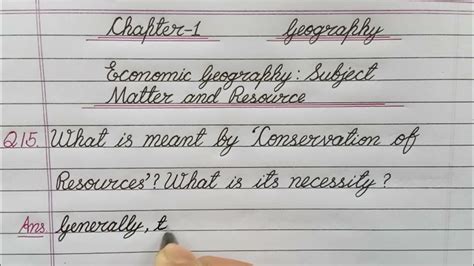 Chapter-1 Geography
Economic Geography: Subject
Matter and Resource
Q15. What is meant by 'Conservation of
Resources'? What is its necessity?
Ans Generally, t